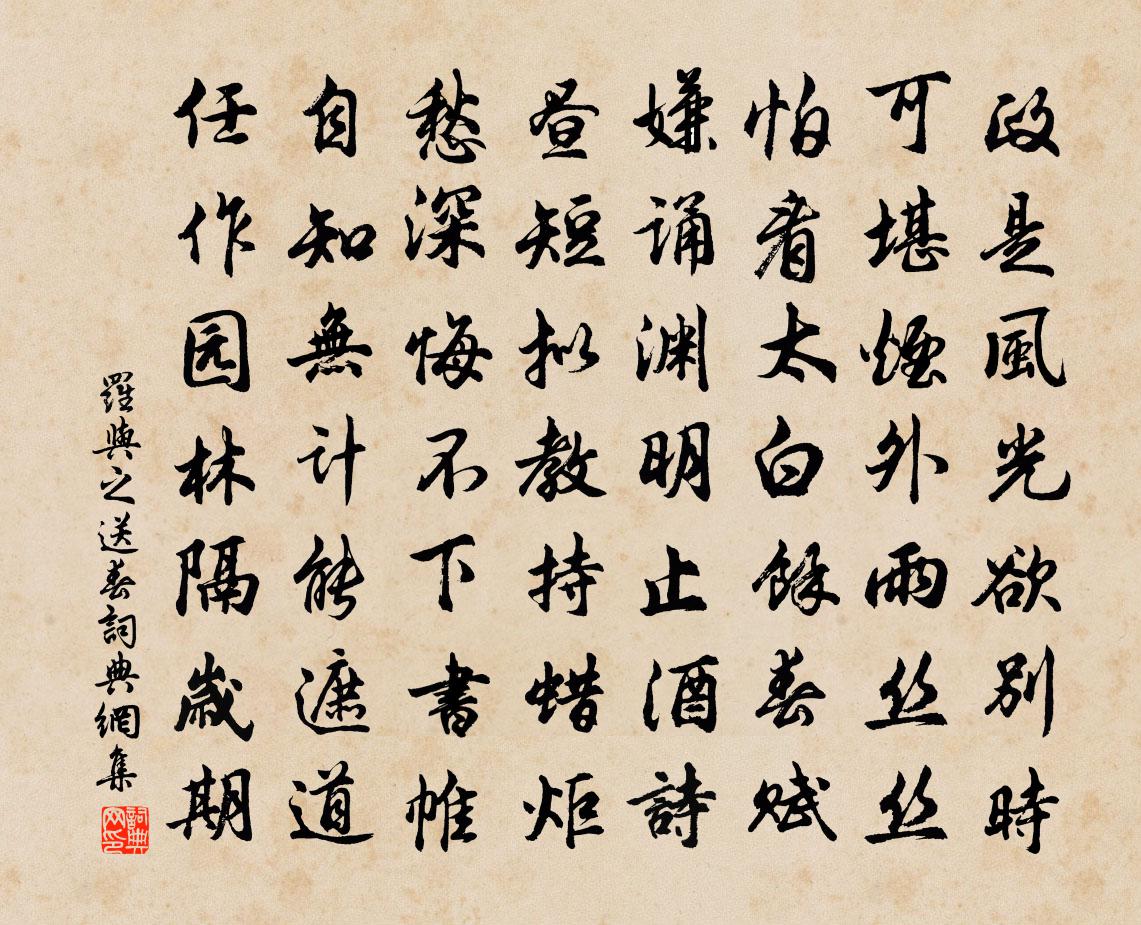 政是風光欲別時
可堪煙外雨丝丝
怕看太白餘春賦
嫌诵渊明止酒詩
昼短拟教持蜡炬
愁深悔不下書帷
自知無计能遮道
任作园林隔歲期
羅與之送春詞典網集
詞典网印